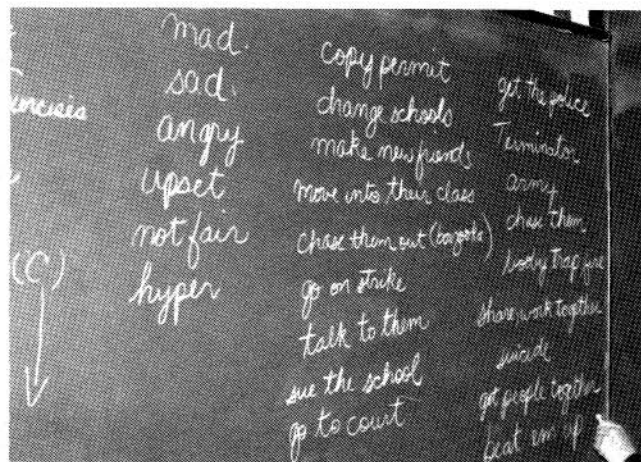 mad.
sad.
angry
upset
not fair
hyper
(C)
copy permit
change schools
make new friends
move into their class
chase them out (bazooka)
go on strike
talk to them
sue the school
go to court
get the police
Terminator
army
chase them
booby trap fire
share, work together
suicide
get people together
beat em up